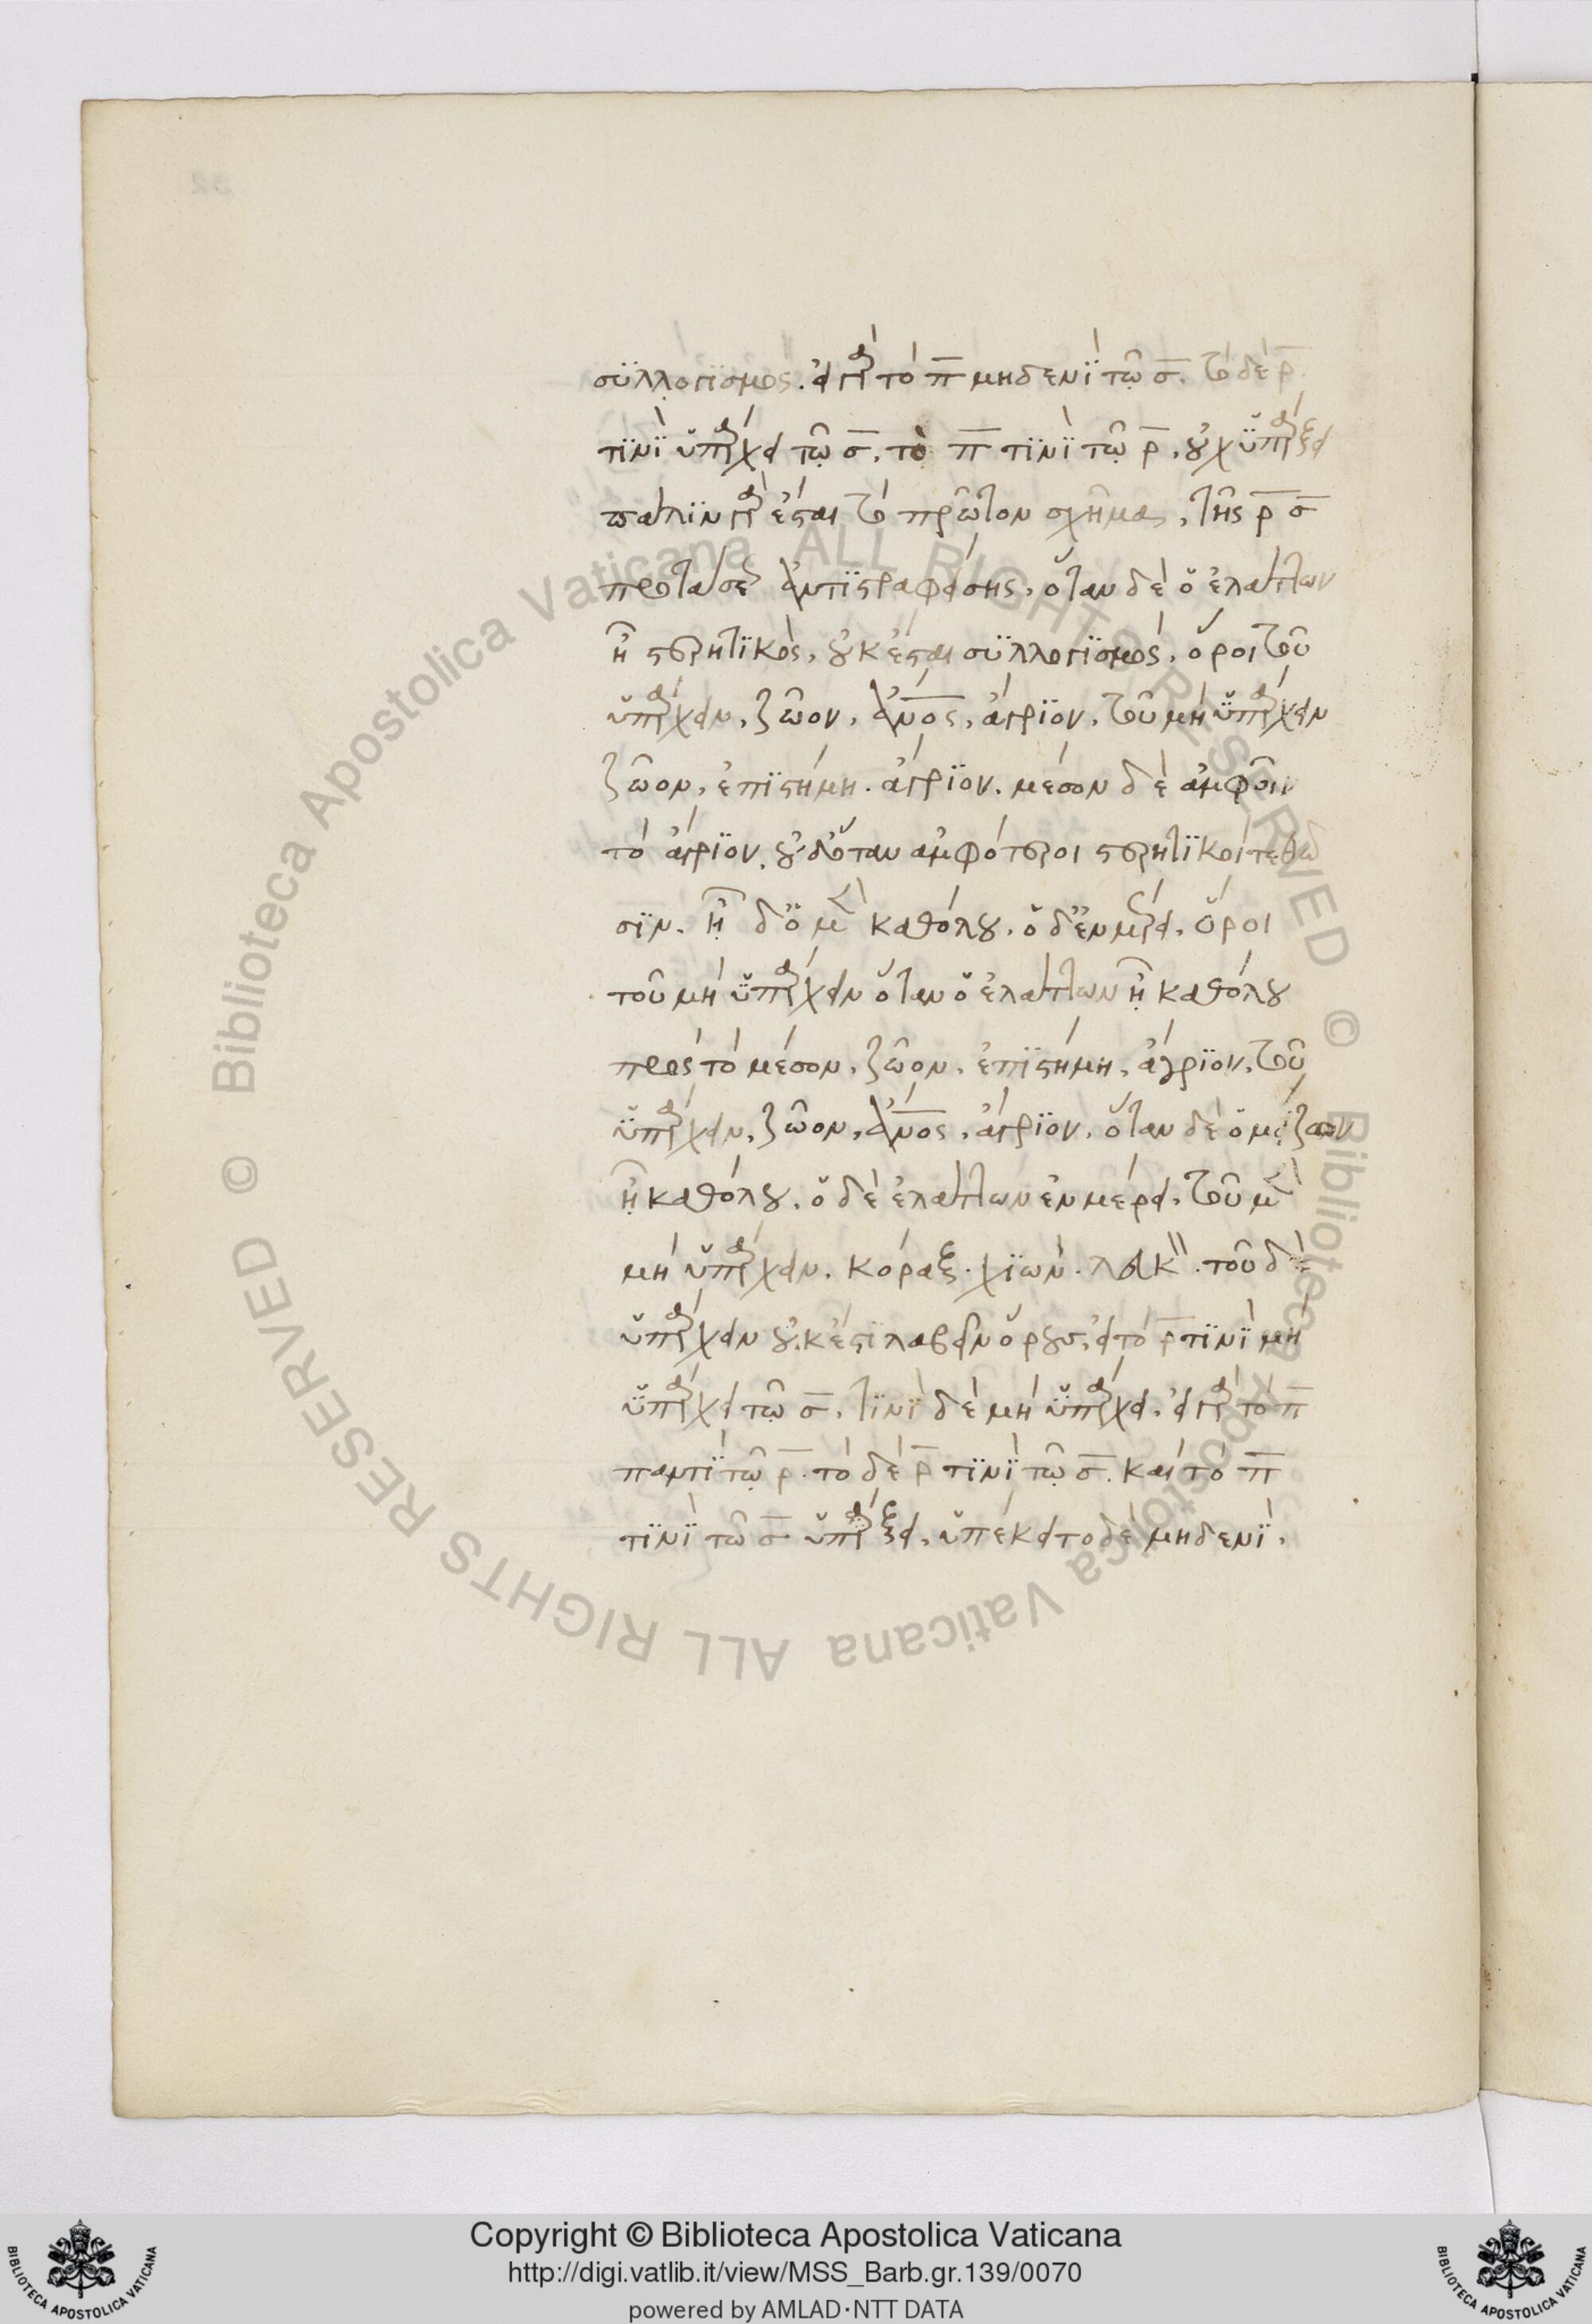 συλλογισμός. εἰ γὰρ τὸ π̅ μηδενὶ τῷ σ̅. τὸ δὲ ρ̅
τινὶ ὑπάρχει τῷ σ̅, τὸ π̅ τινὶ τῷ ρ̅, οὐχ ὑπάρξει
πάλιν γὰρ ἔσται τὸ πρῶτον σχῆμα, τῆς ρ̅ σ̅
προτάσεως ἀντιστραφείσης, ὅταν δὲ ὁ ἐλάττων
ᾖ στερητικός, οὐκ ἔσται συλλογισμός. ὅροι τοῦ
ὑπάρχειν, ζῶον, ἄν̅ος̅, ἄγριον, τοῦ μὴ ὑπάρχειν
ζῶον, ἐπιστήμη. ἄγριον. μέσον δὲ ἀμφοῖν
τὸ ἄγριον. οὐδ' ὅταν ἀμφότεροι στερητικοὶ τεθῶ
σιν. ᾖ δ' ὁ μὲν καθόλου, ὁ δ' ἐν μέρει, ὅροι
τοῦ μὴ ὑπάρχειν ὅταν ὁ ἐλάττων ᾖ καθόλου
πρὸς τὸ μέσον, ζῶον, ἐπιστήμη, ἄγριον, τοῦ
ὑπάρχειν, ζῶον, ἄν̅ος̅, ἄγριον, ὅταν δὲ ὁ μείζων
ᾖ καθόλου, ὁ δὲ ἐλάττων ἐν μέρει, τοῦ μὲν
μὴ ὑπάρχειν. κόραξ. χιών. λευκ. τοῦ δὲ
ὑπάρχειν οὐκ ἔστι λαβεῖν ὅρους, εἰ τὸ ρ̅ τινὶ μὴ
ὑπάρχει τῷ σ̅, τινὶ δὲ μὴ ὑπάρχει. εἰ γὰρ τὸ π̅
παντὶ τῷ ρ̅. τὸ δὲ ρ̅ τινὶ τῷ σ̅. καὶ τὸ π̅
τινὶ τῷ σ̅ ὑπάρξει, ὑπέκειτο δὲ μηδενί.
Copyright © Biblioteca Apostolica Vaticana
http://digi.vatlib.it/view/MSS_Barb.gr.139/0070
powered by AMLAD·NTT DATA